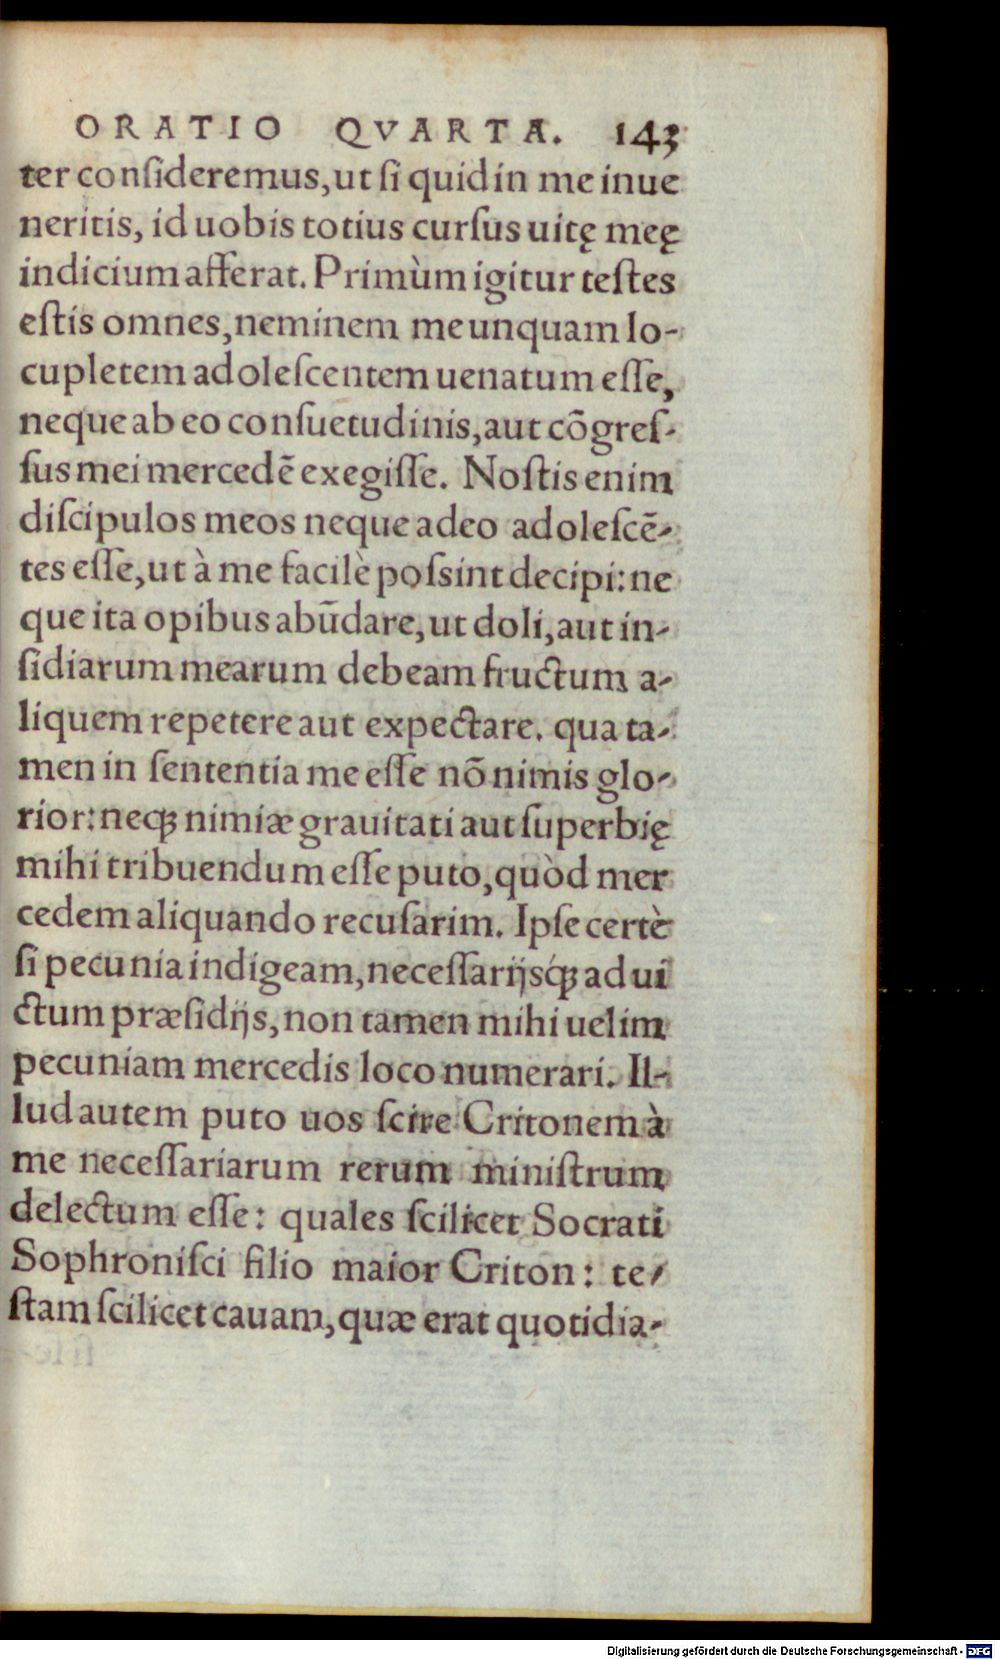 ORATIO QVARTA. 143
ter conſideremus, ut ſi quid in me inue
neritis, id uobis totius curſus uitę meę
indicium afferat. Primùm igitur teſtes
eſtis omnes, neminem me unquam lo-
cupletem adoleſcentem uenatum eſſe,
neque ab eo conſuetudinis, aut cõgreſ-
ſus mei mercedẽ exegiſſe. Noſtis enim
diſcipulos meos neque adeo adoleſcẽ-
tes eſſe, ut à me facilè poſsint decipi: ne
que ita opibus abũdare, ut doli, aut in-
ſidiarum mearum debeam fructum a-
liquem repetere aut expectare. qua ta-
men in ſententia me eſſe nõ nimis glo-
rior: neqꝫ nimiæ grauitati aut ſuperbię
mihi tribuendum eſſe puto, quòd mer
cedem aliquando recuſarim. Ipſe certè
ſi pecunia indigeam, neceſſarijsq́ꝫ ad ui
ctum præſidijs, non tamen mihi uelim
pecuniam mercedis loco numerari. Il-
lud autem puto uos ſcire Critonem à
me neceſſariarum rerum miniſtrum
delectum eſſe: quales ſcilicet Socrati
Sophroniſci filio maior Criton: te-
ſtam ſcilicet cauam, quæ erat quotidia-
Digitalisierung gefördert durch die Deutsche Forschungsgemeinschaft - DFG